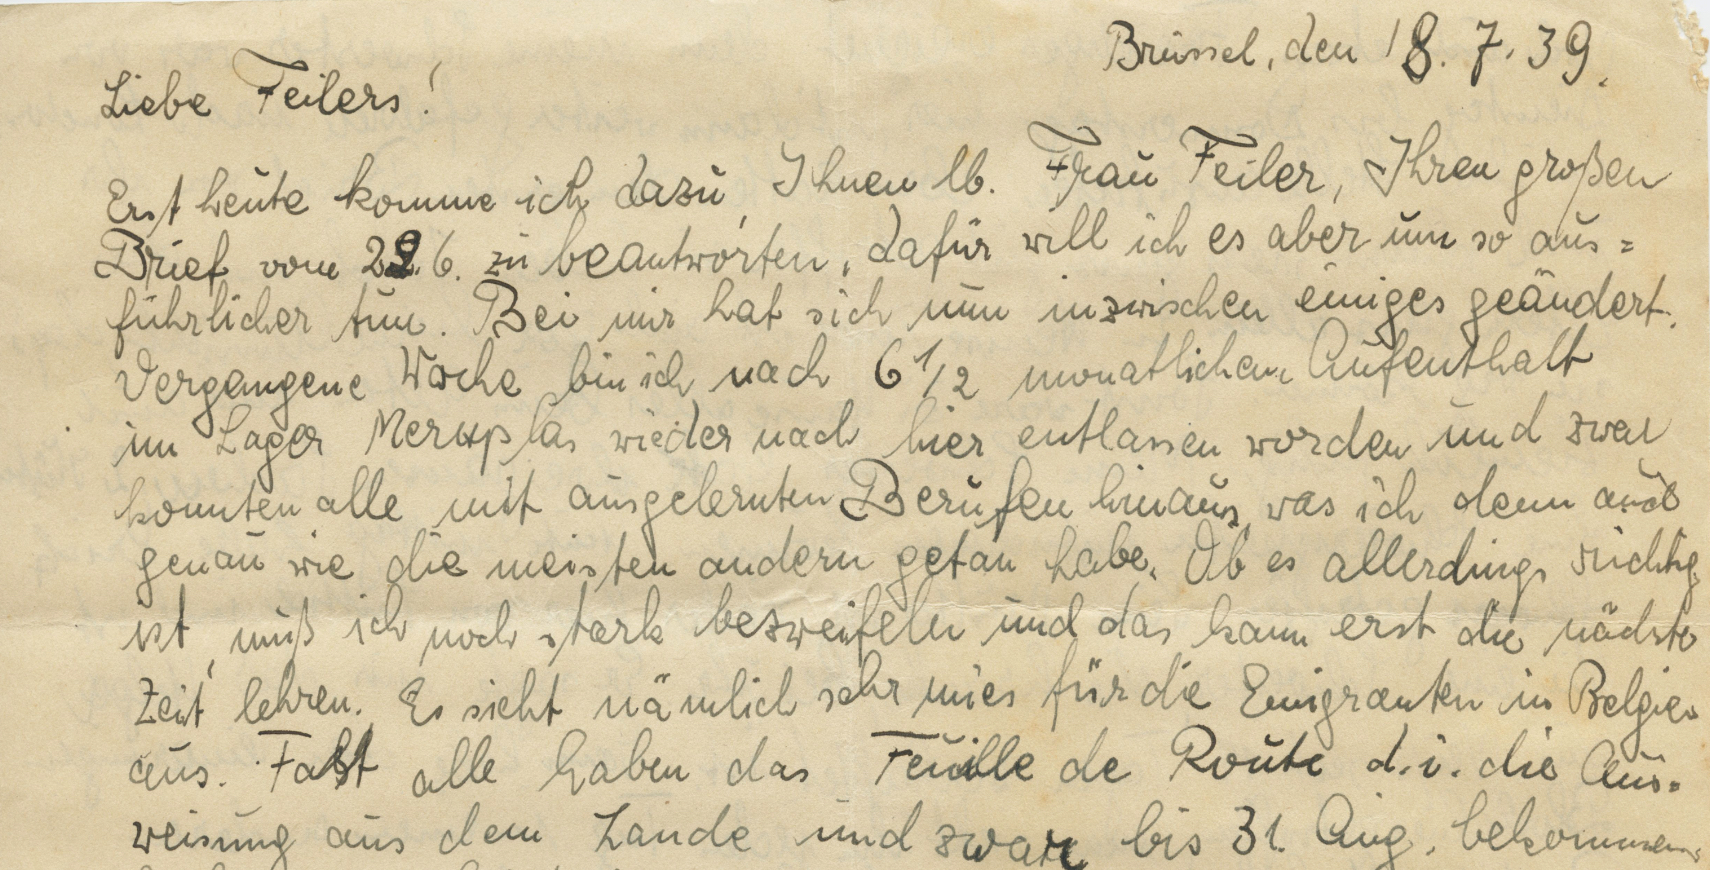 Brüssel, den 18. 7. 39.
Liebe Feilers!
Erst heute komme ich dazu, Ihnen lb. Frau Feiler, Ihren großen
Brief vom 29.6. zu beantworten, dafür will ich es aber um so aus=
führlicher tun. Bei mir hat sich nun inzwischen einiges geändert.
Vergangene Woche bin ich nach 6 1/2 monatlichem Aufenthalt
im Lager Merxplas wieder nach hier entlassen worden und zwar
konnten alle mit ausgelernten Berufen hinaus, was ich denn auch
genau wie die meisten andern getan habe. Ob es allerdings richtig
ist, muß ich noch stark bezweifeln und das kann erst die nächste
Zeit lehren. Es sieht nämlich sehr mies für die Emigranten in Belgien
aus. Fast alle haben das Feuille de Route d.i. die Aus=
weisung aus dem Lande und zwar bis 31. Aug. bekommen